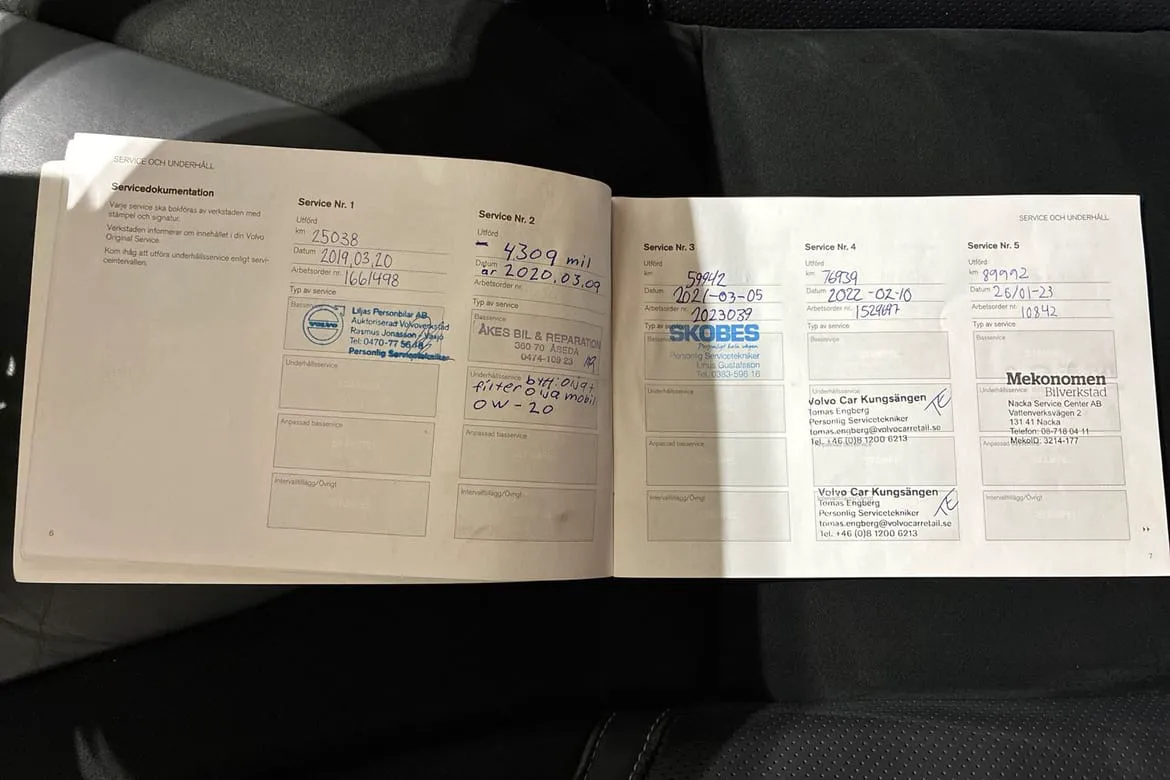 SERVICE OCH UNDERHÅLL
Servicedokumentation
Varje service ska bokföras av verkstaden med
stämpel och signatur.
Verkstaden informerar om innehållet i din Volvo
Original Service.
Kom ihåg att utföra underhållsservice enligt servi-
ceintervallen.
6
Service Nr. 1
Utförd
km 25038
Datum 2019.03.20
Arbetsorder nr. 1661498
Typ av service
Basservice
VOLVO
Liljas Personbilar AB
Auktoriserad Volvoverkstad
Rasmus Jonasson Växjö
Tel: 0470-77 56
Personlig Servicetekniker
Underhållsservice
Anpassad basservice
Intervalltillägg/Övrigt
Service Nr. 2
Utförd
- 4309 mil
Datum
år 2020.03.09
Arbetsorder nr.
Typ av service
Basservice
ÅKES BIL & REPARATION
360 70 ÅSEDA
0474-108 23
Underhållsservice bytt: olja +
filter olja mobil
0W-20
Anpassad basservice
Intervalltillägg/Övrigt
SERVICE OCH UNDERHÅLL
Service Nr. 3
Utförd
km 59942
Datum 2021-03-05
Arbetsorder nr. 2023039
Typ av service
SKOBES
Basservice
Personligt hela vägen
Personlig Servicetekniker
Gustafsson
Tel. 0383-596 16
Underhållsservice
Anpassad basservice
Intervalltillägg/Övrigt
Service Nr. 4
Utförd
km 76939
Datum 2022-02-10
Arbetsorder nr. 1529697
Typ av service
Basservice
Underhållsservice
Volvo Car Kungsängen
Tomas Engberg TE
Personlig Servicetekniker
tomas.engberg@volvocarretail.se
Tel. +46 (0)8 1200 6213
Anpassad basservice
Intervalltillägg/Övrigt
Volvo Car Kungsängen
Tomas Engberg TE
Personlig Servicetekniker
tomas.engberg@volvocarretail.se
Tel. +46 (0)8 1200 6213
Service Nr. 5
Utförd
km 89992
Datum 26/01-23
Arbetsorder nr. 10842
Typ av service
Basservice
Mekonomen
Bilverkstad
Underhållsservice
Nacka Service Center AB
Vattenverksvägen 2
131 41 Nacka
Telefon: 08-718 04 11
Anpassad basservice
MekoID: 3214-177
Intervalltillägg/Övrigt
7